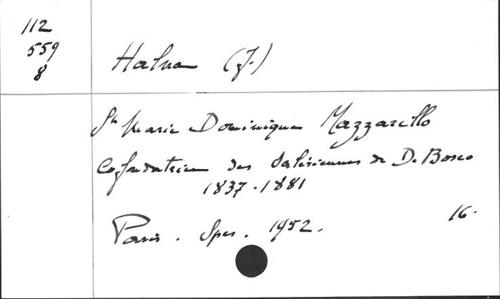 112
559
8
Halna (J.)
Ste Marie Dominique Mazzarello
Cofondatrice des Salésiennes de D. Bosco
1837-1881
Paris. Spes. 1952. 16.